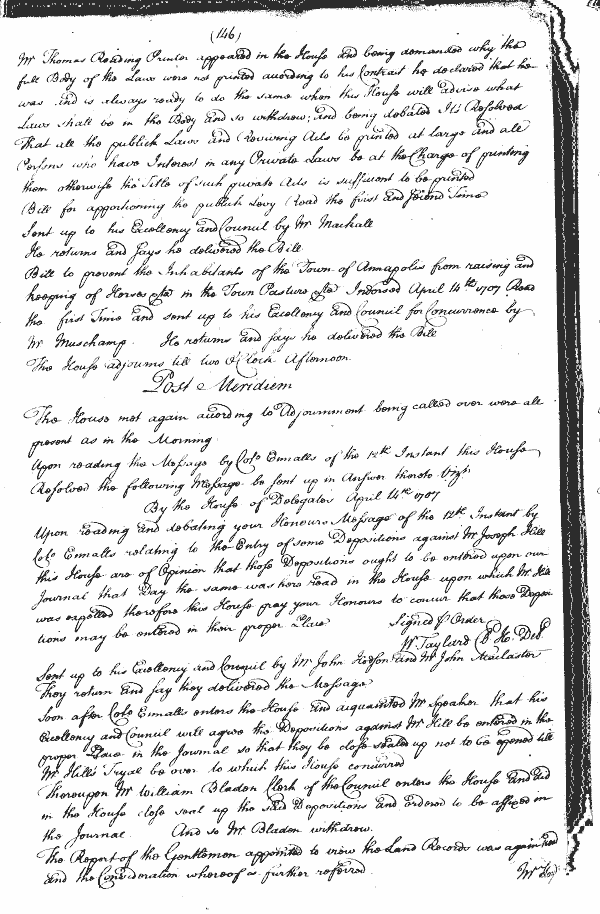 (146)
Mr Thomas Reading Printer appeared in the House and being demanded why the
full Body of the Laws were not printed according to his Contract he declared that he
was and is always ready to do the same when this House will advise what
Laws shall be in the Body and so withdrew; and being debated It's Resolved
That all the publick Laws and Reviving Acts be printed at large and all
Persons who have Interest in any Private Laws be at the Charge of printing
them otherwise the Title of such private Acts is sufficient to be printed
Bill for apportioning the publick Levy read the first and second Time
Sent up to his Excellency and Council by Mr Mackall
He returns and says he delivered the Bill
Bill to prevent the Inhabitants of the Town of Annapolis from raising and
keeping of Horses &ca in the Town Pasture &ca Indorsed April 14th 1707 Read
the first Time and sent up to his Excellency and Council for Concurrence by
Mr Muschamp. He returns and says he delivered the Bill
The House adjourns till two O'Clock Afternoon
Post Meridiem
The House met again according to Adjournment being called over were all
present as in the Morning
Upon reading the Message by Colo Ennalls of the 12th Instant this House
Resolved the following Message be sent up in Answer thereto Vizt
By the House of Delegates April 14th 1707
Upon reading and debating your Honours Message of the 12th Instant by
Colo Ennalls relating to the Entry of some Depositions against Mr Joseph Hill
this House are of Opinion that those Depositions ought to be entered upon our
Journal that Day the same was here read in the House upon which Mr Hill
was expelled therefore this House pray your Honours to concur that those Deposi
tions may be entered in their proper Place
Signed P Order
W. Taylard Cl H. Del.
Sent up to his Excellency and Council by Mr John Hodson and Mr John Macclaster
They return and say they delivered the Message
Soon after Colo Ennalls enters the House and acquainted Mr Speaker that his
Excellency and Council will agree the Depositions against Mr Hill be entered in the
proper Place in the Journal so that they be close sealed up not to be opened till
Mr Hill's Tryal be over to which this House concurred
Thereupon Mr William Bladen Clerk of the Council enters the House and did
in the House close seal up the said Depositions and ordered to be affixed in
the Journal. And so Mr Bladen withdrew.
The Report of the Gentlemen appointed to view the Land Records was again read
and the Consideration whereof is further referred